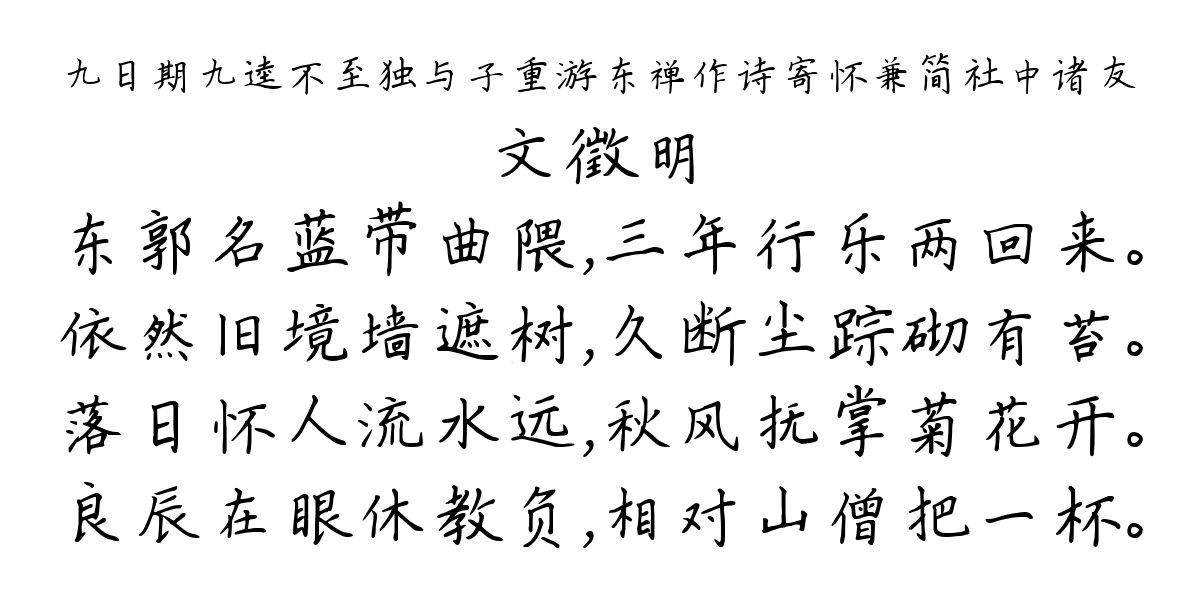 九日期九逵不至独与子重游东禅作诗寄怀兼简社中诸友
文徵明
东郭名蓝带曲隈,三年行乐两回来。
依然旧境墙遮树,久断尘踪砌有苔。
落日怀人流水远,秋风抚掌菊花开。
良辰在眼休教负,相对山僧把一杯。